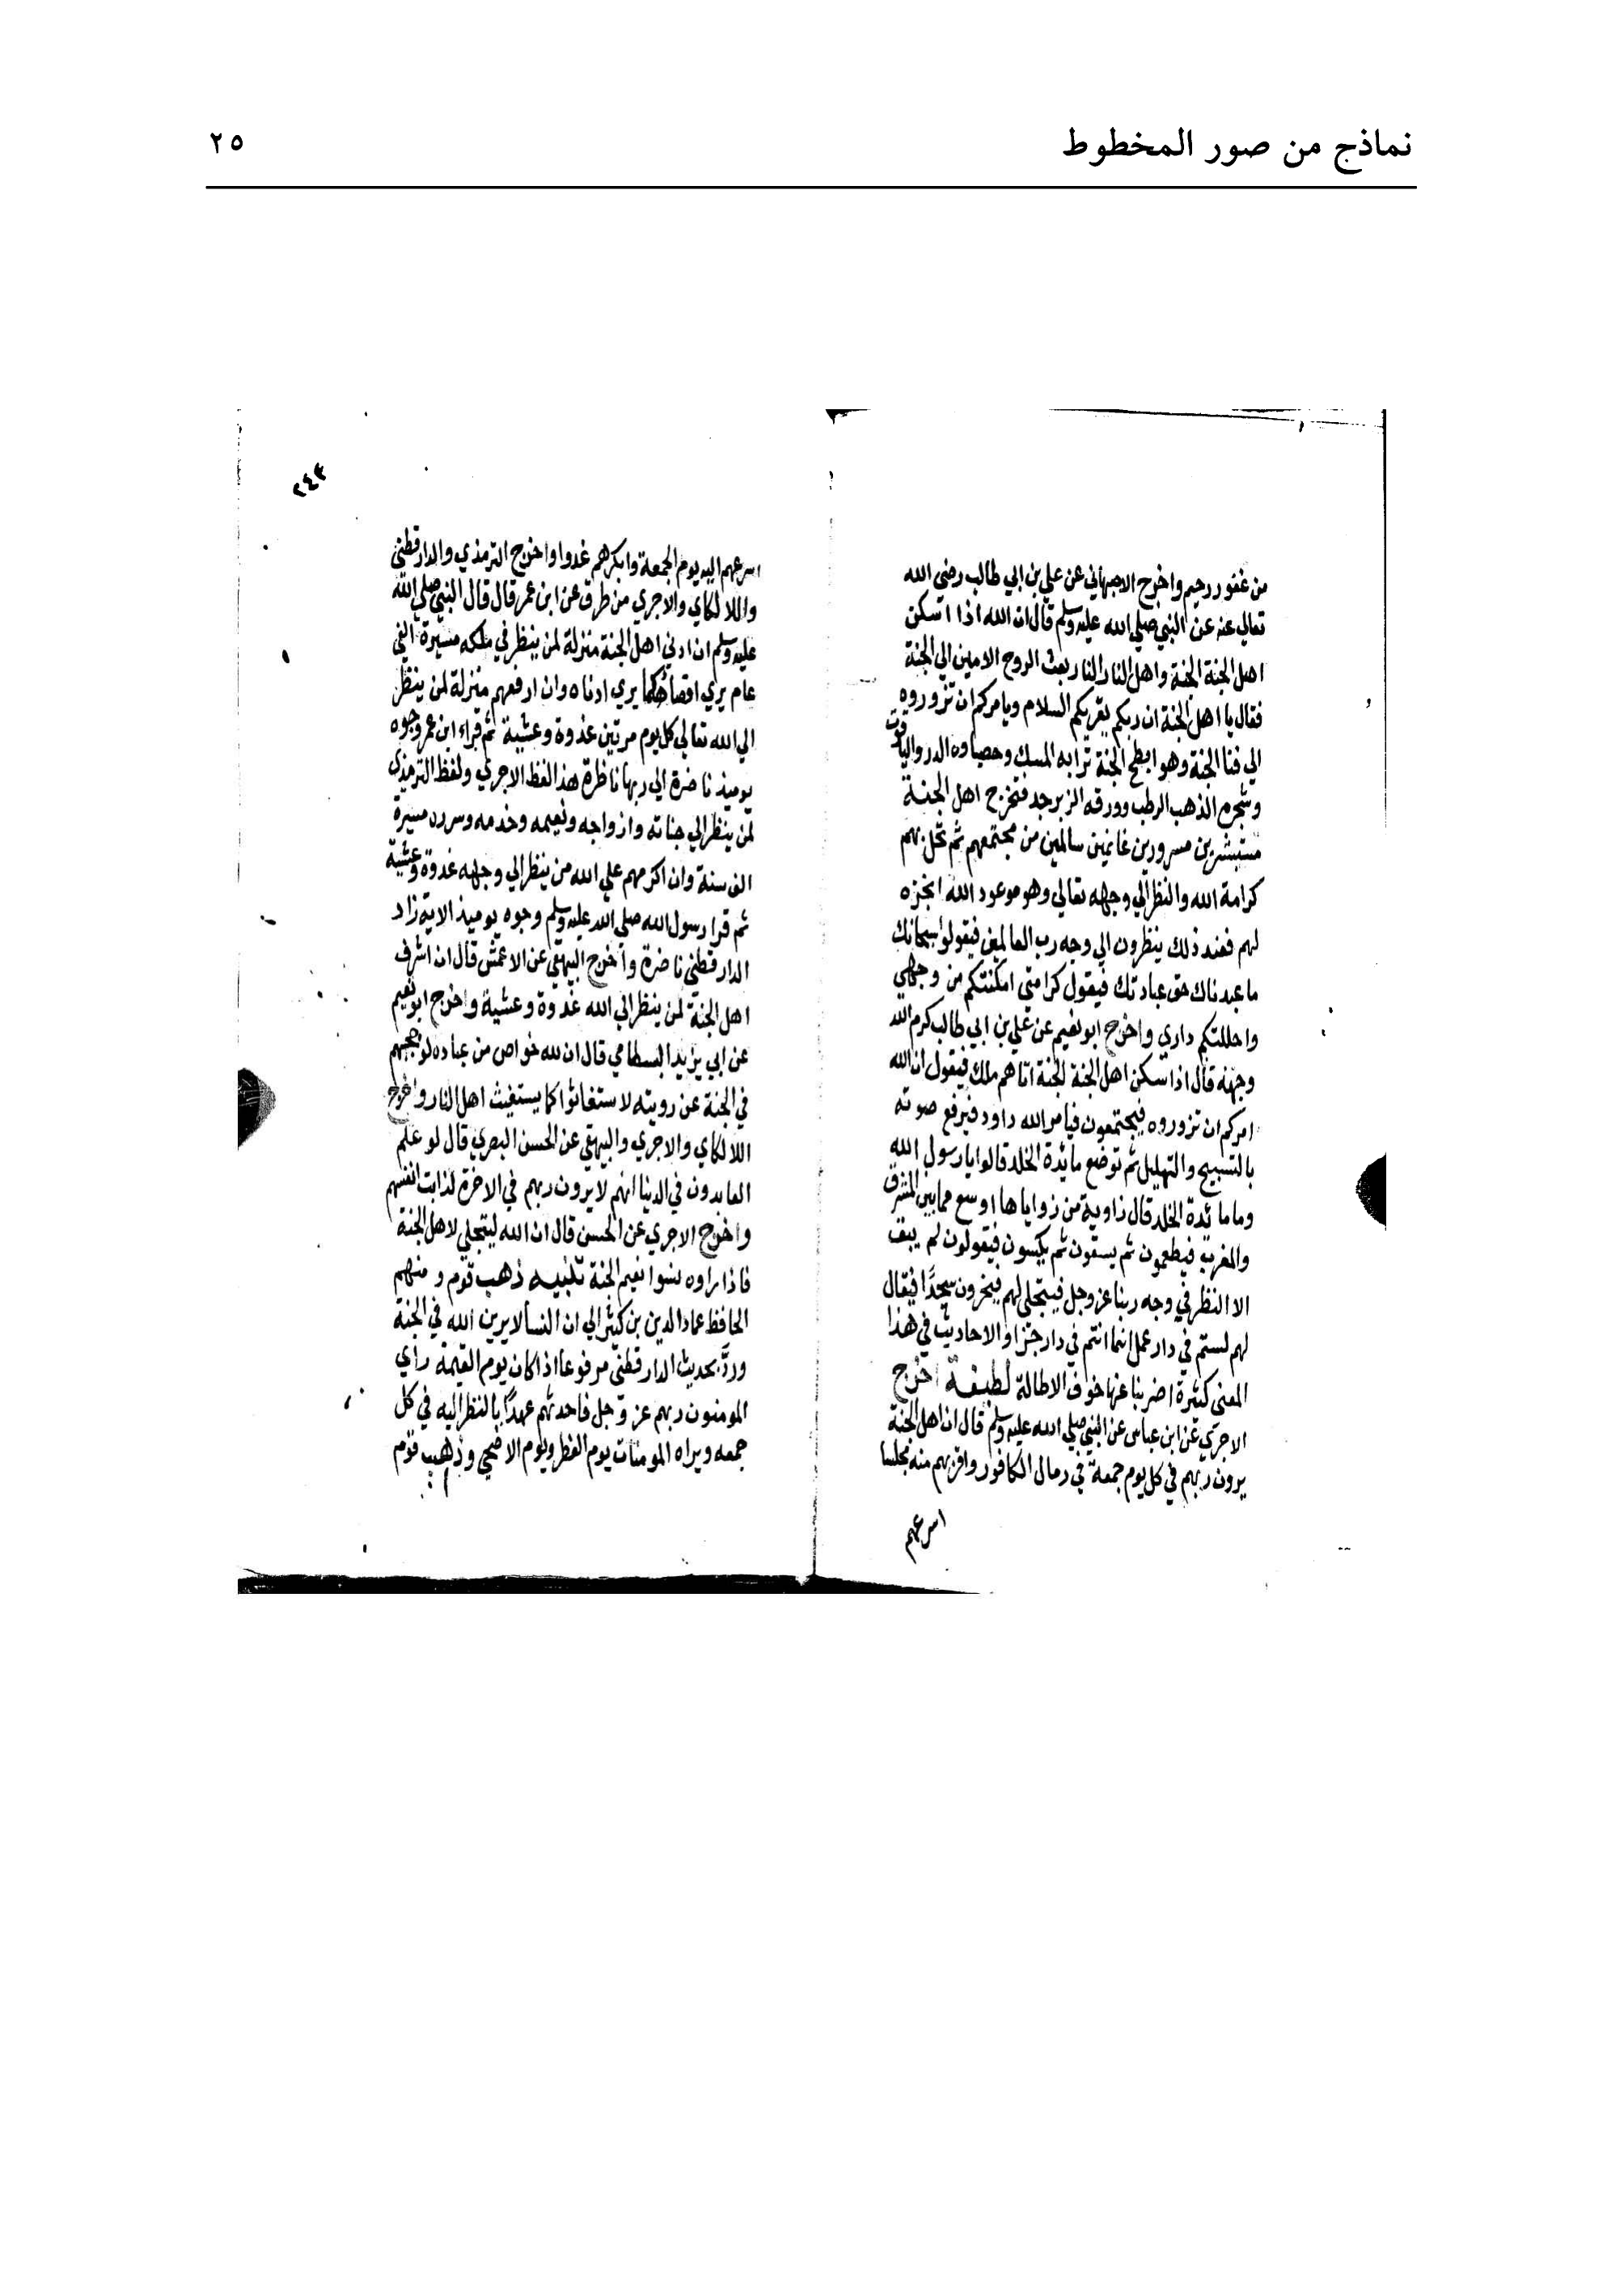 نماذج من صور المخطوط
٢٥
من غفور رحيم واخرج الاصبهاني عن علي بن ابي طالب رضي الله
تعالي عنه عن النبي صلي الله عليه وسلم قال ان الله اذا اسكن
اهل الجنة الجنة واهل النار النار بعث الروح الامين الي الجنة
فقال يا اهل الجنة ان ربكم يقريكم السلام ويامركم ان تزوروه
الي فنا الجنة وهو ابطح الجنة ترابه المسك وحصباوه الدر والياقوت
وشجره الذهب الرطب وورقه الزبرجد فتخرج اهل الجنة
مستبشرين مسرورين غانمين سالمين من مجتمعهم ثم تحل بهم
كرامة الله والنظر الي وجهه تعالي وهو موعود الله انجزه
لهم فعند ذلك ينظرون الي وجه رب العالمين فيقولوا سبحانك
ما عبدناك حق عبادتك فيقول كرامتي امكنتكم من وجهي
واحللتكم داري واخرج ابو نعيم عن علي بن ابي طالب كرم الله
وجهه قال اذا سكن اهل الجنة الجنة اتاهم ملك فيقول ان الله
امركم ان تزوروه فيجتمعون فيامر الله داود فيرفع صوته
بالتسبيح والتهليل ثم توضع مائدة الخلد قالوا يا رسول الله
وما مائدة الخلد قال زاوية من زواياها اوسع مما بين المشرق
والمغرب فيطعمون ثم يسقون ثم يكسون فيقولون لم يبق
الا النظر في وجه ربنا عز وجل فيتجلي لهم فيخرون سجدًا فيقال
لهم لستم في دار عمل انما انتم في دار جزا والاحاديث في هذا
المعني كثيرة اضربنا عنها خوف الاطالة لطيفة اخرج
الاجري عن ابن عباس عن النبي صلي الله عليه وسلم قال ان اهل الجنة
يرون ربهم في كل يوم جمعة في رمال الكافور واقربهم منه مجلسا
اسرعهم
٢٤٣
اسرعهم اليه يوم الجمعة وابكرهم غدوا واخرج الترمذي والدارقطني
واللالكاي والاجري من طرق عن ابن عمر قال قال النبي صلي الله
عليه وسلم ان ادني اهل الجنة منزلة لمن ينظر في ملكه مسيرة الفي
عام يري اقصاه كما يري ادناه وان ارفعهم منزلة لمن ينظر
الي الله تعالي كل يوم مرتين غدوة وعشية ثم قراء ابن عمر وجوه
يوميذ ناضرة الي ربها ناظرة هذا لفظ الاجري ولفظ الترمذي
لمن ينظر الي جناته وازواجه ونعيمه وخدمه وسرره مسيرة
الف سنة وان اكرمهم علي الله من ينظر الي وجهه غدوة وعشية
ثم قرا رسول الله صلي الله عليه وسلم وجوه يوميذ الاية زاد
الدارقطني ناضرة واخرج البيهقي عن الاعمش قال ان اشرف
اهل الجنة لمن ينظر الي الله غدوة وعشية واخرج ابو نعيم
عن ابي يزيد البسطامي قال ان لله خواص من عباده لو حجبهم
في الجنة عن رويته لاستغاثوا كما يستغيث اهل النار واخرج
اللالكاي والاجري والبيهقي عن الحسن البصري قال لو علم
العابدون في الدنيا انهم لا يرون ربهم في الاخرة لذابت انفسهم
واخرج الاجري عن الحسن قال ان الله ليتجلي لاهل الجنة
فاذا راوه نسوا نعيم الجنة تنبيه ذهب قوم ومنهم
الحافظ عماد الدين بن كثير الي ان النسا لا يرين الله في الجنة
وردَّ بحديث الدارقطني مرفوعا اذا كان يوم القيمة رأي
المومنون ربهم عز وجل فاحدثهم عهدًا بالنظر اليه في كل
جمعه ويراه المومنات يوم الفطر ويوم الاضحي وذهب قوم